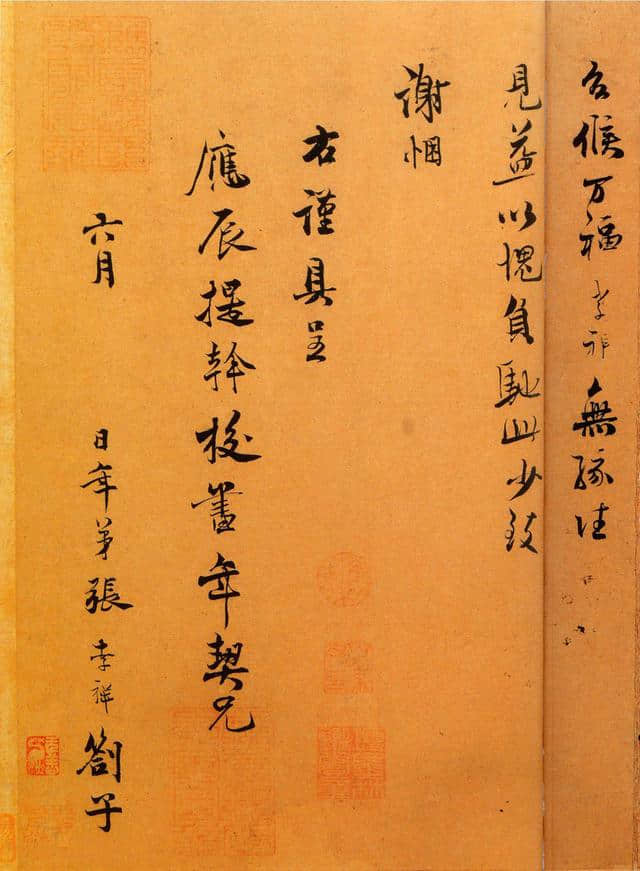 台候万福孝祥無緣往
見益以愧負馳此少致
謝悃
右謹具呈
應辰提幹校舊年契兄
六月 日年弟張孝祥劄子